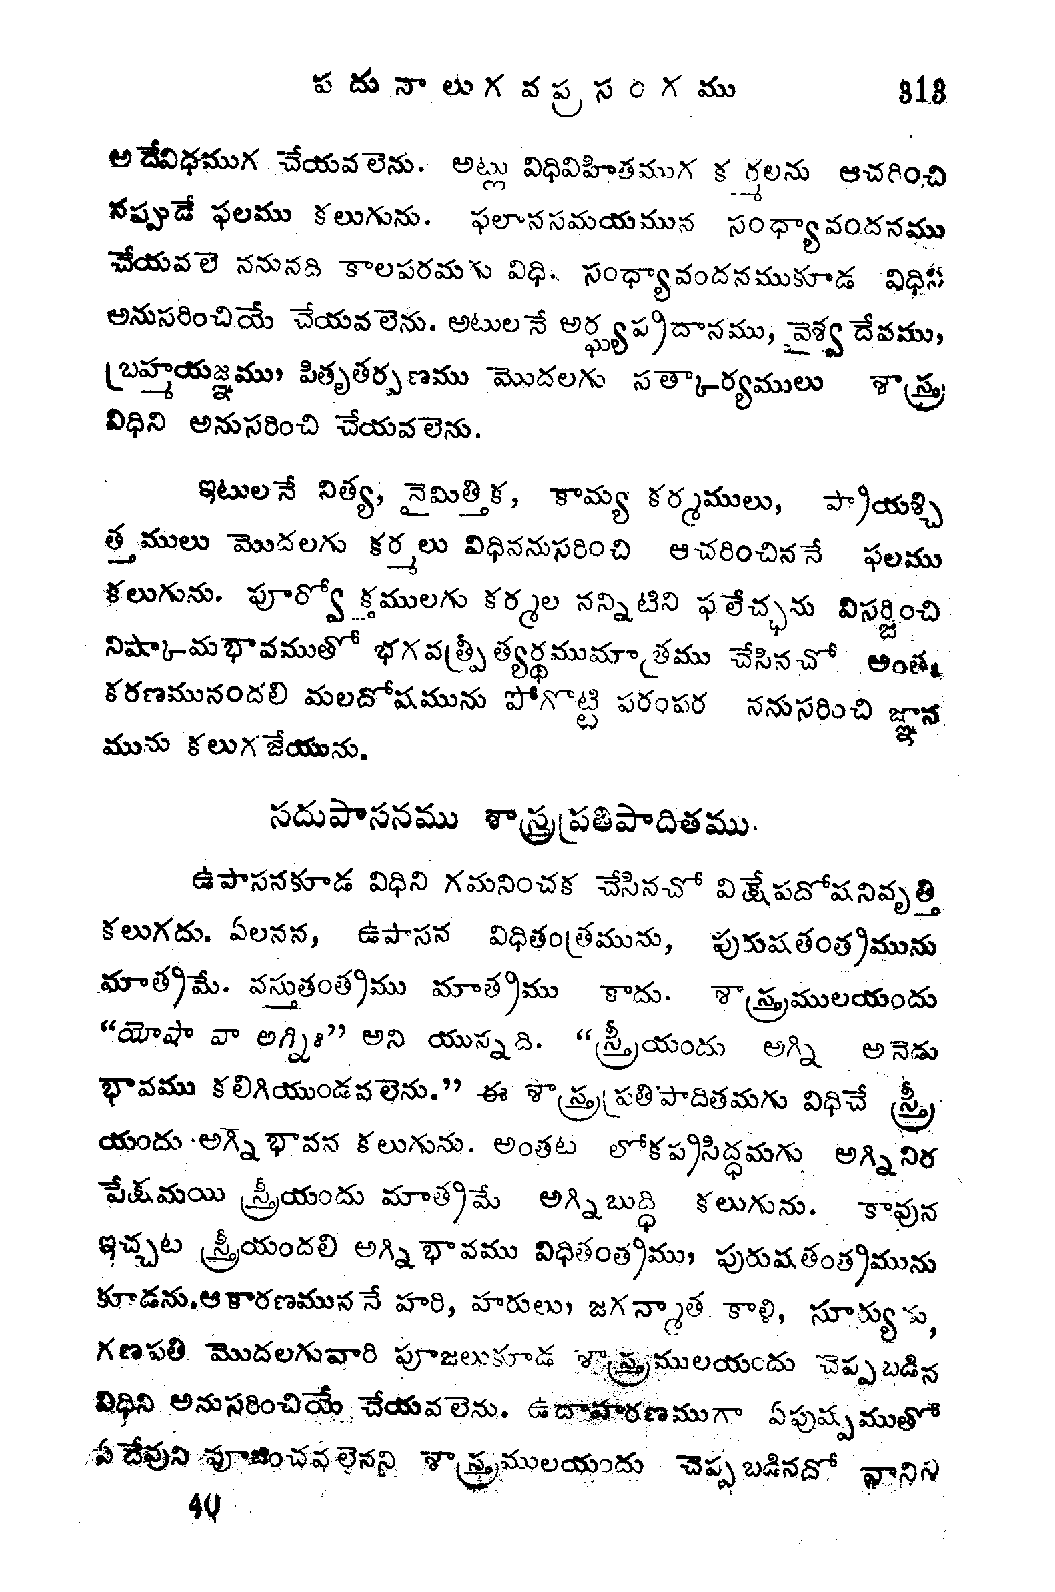 పదునాలుగవప్రసంగము 313
అదేవిధముగ చేయవలెను. అట్లు విధివిహితముగ కర్మలను ఆచరించి
నప్పుడే ఫలము కలుగును. ఫలానసమయమున సంధ్యావందనము
చేయవలె ననునది కాలపరమగు విధి. సంధ్యావందనముకూడ విధిని
అనుసరించియే చేయవలెను. అటులనే అర్ఘ్యప్రదానము, వైశ్వదేవము,
బ్రహ్మయజ్ఞము, పితృతర్పణము మొదలగు సత్కార్యములు శాస్త్ర
విధిని అనుసరించి చేయవలెను.
ఇటులనే నిత్య, నైమిత్తిక, కామ్య కర్మములు, ప్రాయశ్చి
త్తములు మొదలగు కర్మలు విధిననుసరించి ఆచరించిననే ఫలము
కలుగును. పూర్వోక్తములగు కర్మల నన్నిటిని ఫలేచ్ఛను విసర్జించి
నిష్కామభావముతో భగవత్ప్రీత్యర్థముమాత్రము చేసినచో అంతః
కరణమునందలి మలదోషమును పోగొట్టి పరంపర ననుసరించి జ్ఞాన
మును కలుగజేయును.
సదుపాసనము శాస్త్రప్రతిపాదితము.
ఉపాసనకూడ విధిని గమనించక చేసినచో విక్షేపదోషనివృత్తి
కలుగదు. ఏలనన, ఉపాసన విధితంత్రమును, పురుషతంత్రమును
మాత్రమే. వస్తుతంత్రము మాత్రము కాదు. శాస్త్రములయందు
“యోషా వా అగ్నిః” అని యున్నది. “స్త్రీయందు అగ్ని అనెడు
భావము కలిగియుండవలెను.” ఈ శాస్త్రప్రతిపాదితమగు విధిచే స్త్రీ
యందు అగ్నిభావన కలుగును. అంతట లోకప్రసిద్ధమగు అగ్నినిర
పేక్షమయి స్త్రీయందు మాత్రమే అగ్నిబుద్ధి కలుగును. కావున
ఇచ్చట స్త్రీయందలి అగ్నిభావము విధితంత్రము, పురుషతంత్రమును
కూడను. ఆకారణముననే హరి, హరులు, జగన్మాత కాళి, సూర్యుడు,
గణపతి మొదలగువారి పూజలుకూడ శాస్త్రములయందు చెప్పబడిన
విధిని అనుసరించియే చేయవలెను. ఉదాహరణముగా ఏపుష్పముతో
ఏదేవుని పూజించవలెనని శాస్త్రములయందు చెప్పబడినదో వానిని
40